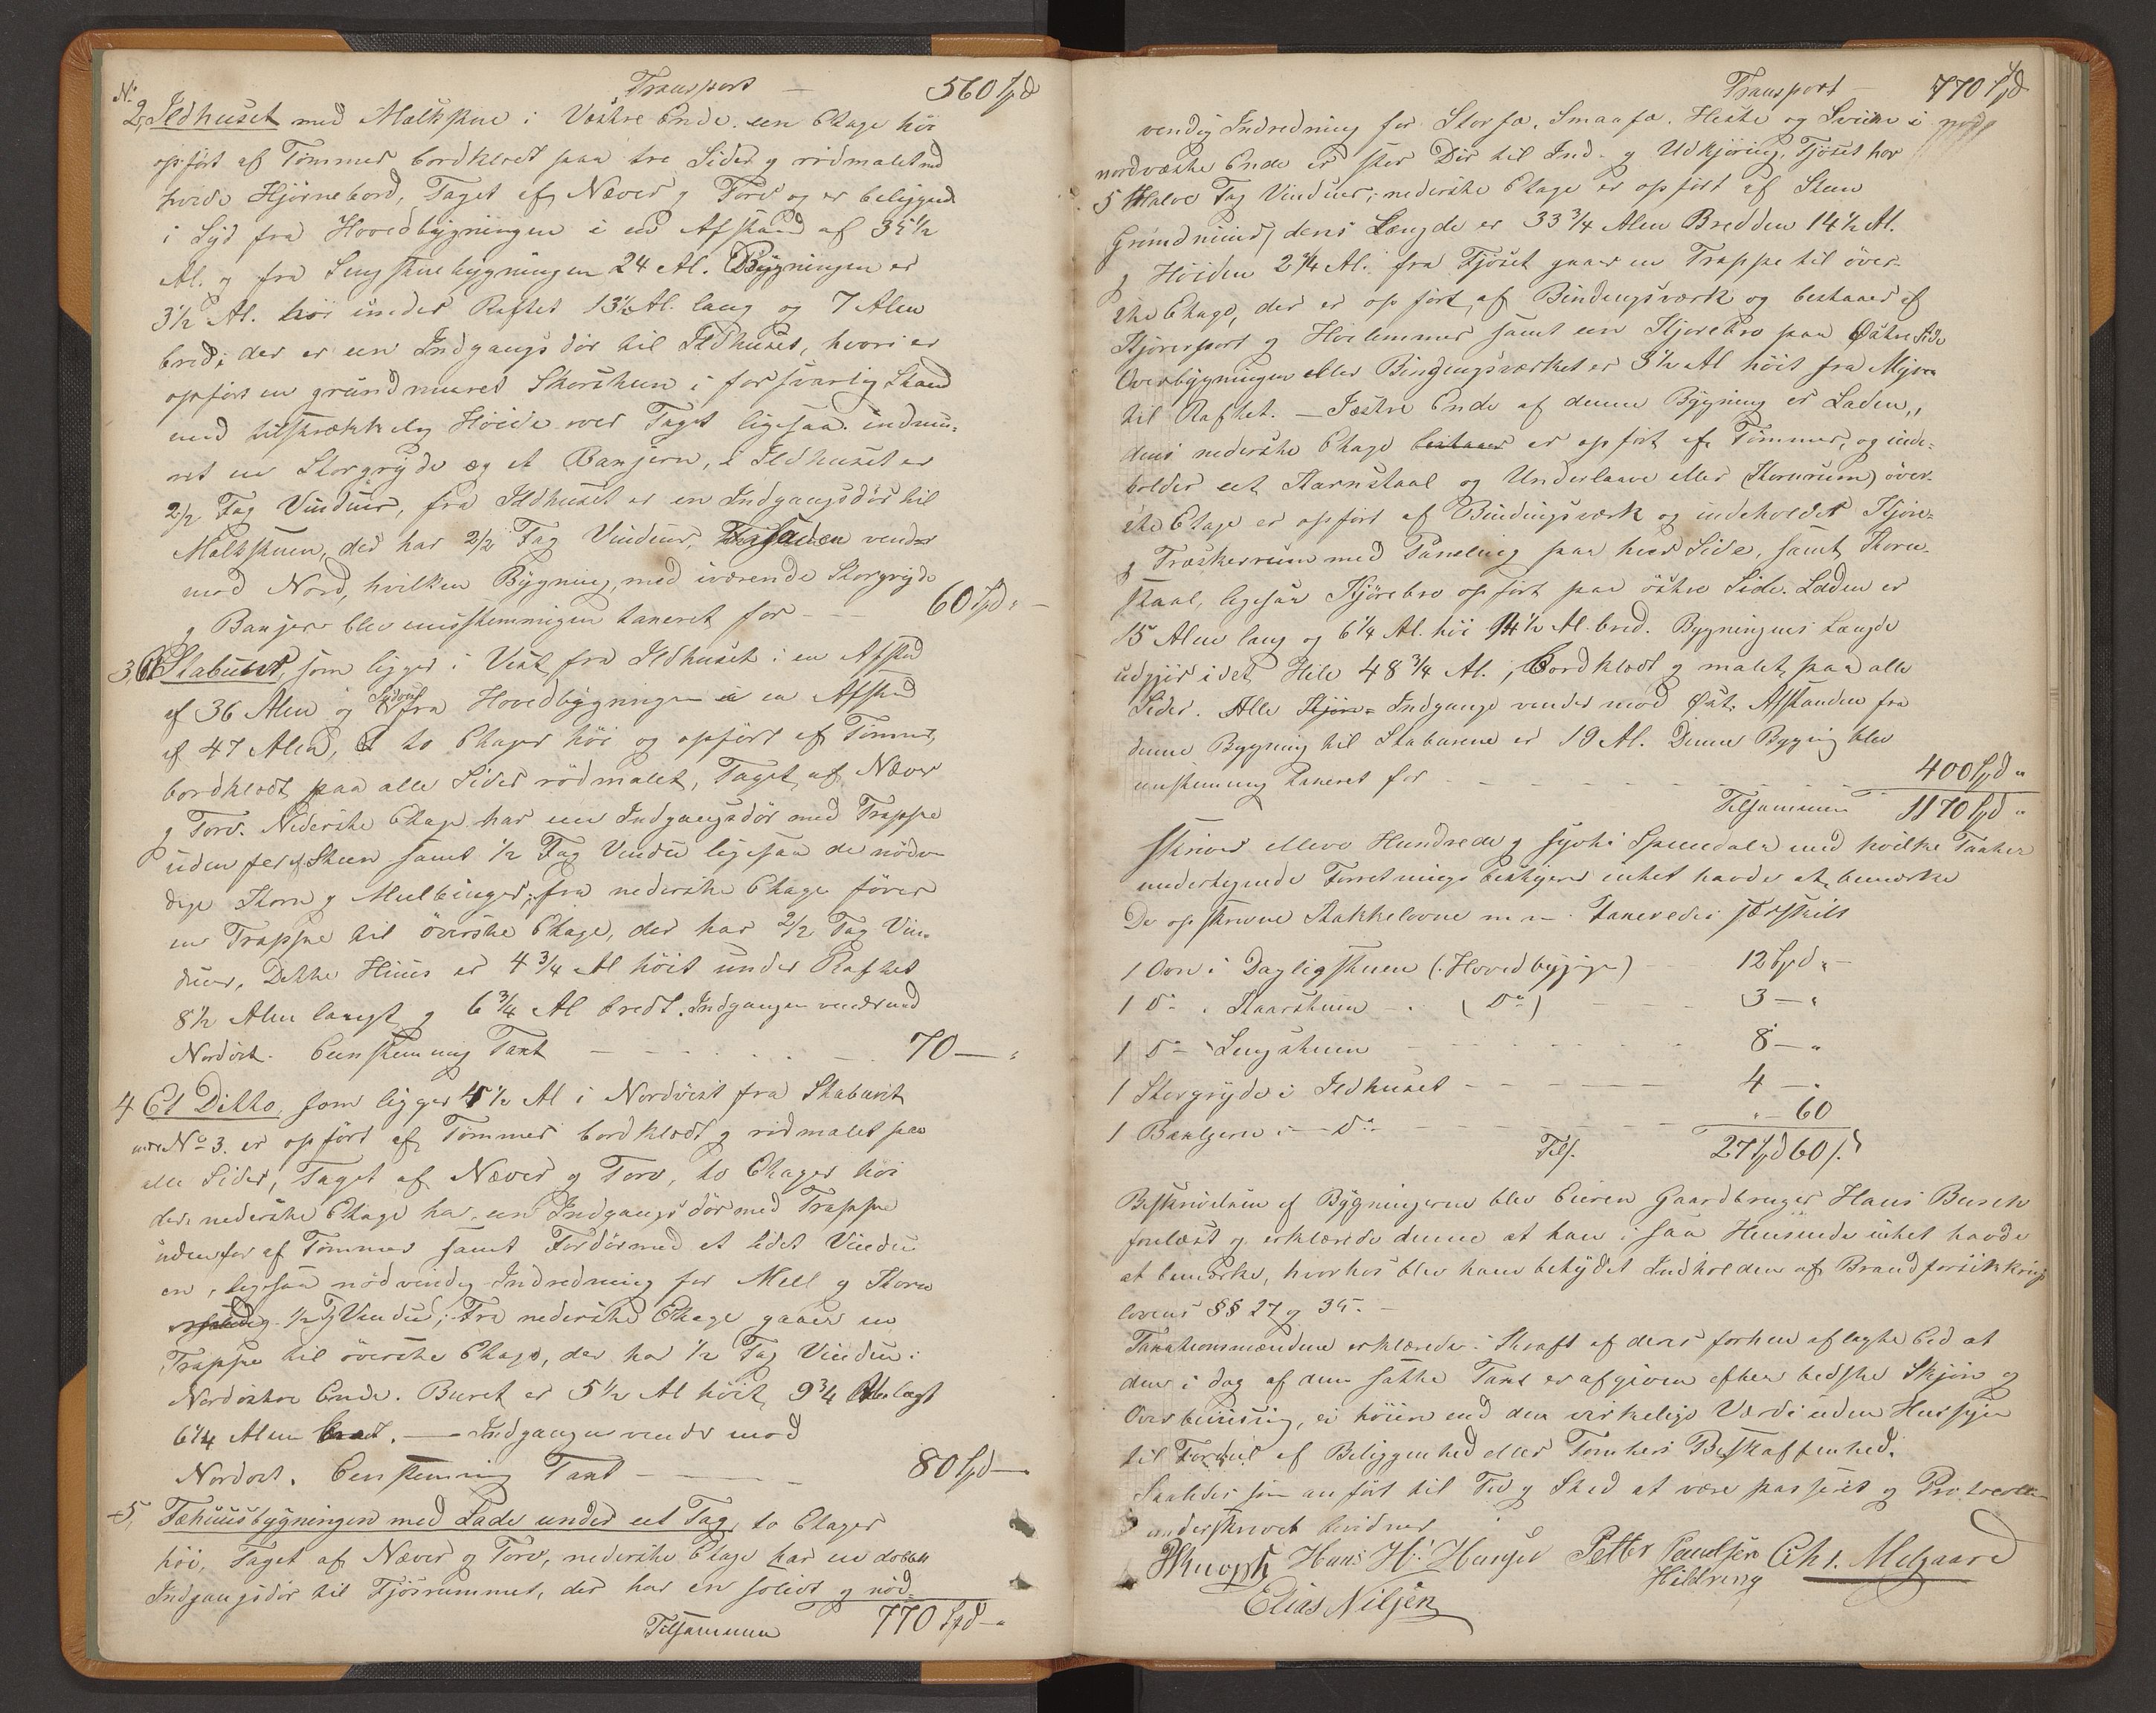 Transport — 560 Spd
No
2, Ildhuset med Malkstue i Vestre Ende. een Etage höi
opfört af Tömmer bordklædt paa tre Sider og rödmalet med
hvide Hjörnebord, Taget af Næver og Torv og er beliggende
i Syd fra Hovedbygningen i en Afstand af 35 1/2
Al. og fra Sengstuebygningen 24 Al. Bygningen er
3 1/2 Al. höi under Raftet 13 1/2 Al. lang og 7 Alen
bred; der er een Indgangsdör til Ildhuset, hvori er
opfört en grundmuret Skorsteen i forsvarlig Stand
med tilstrækkelig Höide over Taget ligesaa indmu-
ret en Storgryde og et Banjern, i Ildhuset er
2/2 Fag Vinduer, fra Ildhuset er en Indgangsdör til
Malkstuen, der har 2/2 Fag Vinduer, Facaden vender
mod Nord, hvilken Bygning med iværende Storgryde
og Banjern blev eenstemmigen taxeret for — — 60 Spd „ —
3, Et Stabuur, som ligger i Vest fra Ildhuset i en Afstand
af 36 Alen og Sydvest fra Hovedbygningen i en Afstand
af 47 Alen, to Etager höi og opfört af Tömmer,
bordklædt paa alle Sider rödmalet, Taget af Næver
og Torv. Nederste Etage har een Indgangsdör med Trappe
udenfor af Steen samt 1/2 Fag Vindu ligesaa de nödven
dige Korn og Meelbinger; fra nederste Etage förer
en Trappe til överste Etage, der har 2/2 Fag Vin-
duer, Dette Huus er 4 3/4 Al höit under Raftet
8 1/2 Alen langt og 6 3/4 Al bredt. Indgangen vender mod
Nordost. Eenstemmig Taxt — — — 70 — „
4 Et Ditto, som ligger 4 1/2 Al i Nordvest fra Staburet
under No 3. er opfört af Tömmer bordklædt og rödmalet paa
alle Sider, Taget af Næver og Torv, to Etager höi
dets nederste Etage har een Indgangsdör med Trappe
udenfor af Tömmer samt Fordör med et lidet Vindu
en, ligesaa nödvendig Indredning for Meel og Korn
og 1/2 Fag Vindu; Fra nederste Etage gaaer en
Trappe til överste Etage, der har 1/2 Fag Vindu i
Nordöstre Ende. Buret er 5 1/2 Al höit, 9 3/4 Alen langt
6 1/4 Alen bredt. — Indgangen vender mod
Nordost. Eenstemmig Taxt — — — 80 Spd —
5, Fæhuusbygningen med Lade under eet Tag, to Etager
höi, Taget af Næver og Torv, nederste Etage har en dobbelt
Indgangsdör til Fjösrummet, der har en solid og nöd-
Tilsammen 770 Spd — „
Transport — 770 Spd
vendig Indredning for Storfæ, Smaafæ, Heste og Sviin i
nordvestre Ende er stor Dör til Ind- og Udkjöring, Fjöset har
5 Halve Fag Vinduer; nederste Etage er opfört af Steen
Grundmuur, dens Længde er 33 3/4 Alen Bredden 14 1/2 Al.
og Höiden 2 1/4 Al. fra Fjöset gaaer en Trappe til över-
ste Etage, der er opfört af Bindingsværk og bestaaer af
Kjöreport og Höelemmer samt een Kjörebro paa Östre Side
Overbygningen eller Bindingsværket er 3 1/2 Al höit fra
til Raftet. — I östre Ende af denne Bygning er Laden,
dens nederste Etage bestaaer er opfört af Tömmer, og inde-
holder eet Kornstaal og Underlaave eller (Kornrum) över-
ste Etage er opfört af Bindingsværk og indeholder Kjöre-
og Træskerum med Paneling paa hver Side, samt Korn-
staal, ligesaa Kjörebro opfört paa östre Side. Laden er
15 Alen lang og 6 1/4 Al. höi 14 1/2 Al. bred. Bygningens Længde
udgjör i det Hele 48 3/4 Al., Bordklædt og malet paa alle
Sider. Alle Kjöre- Indgange vender mod Öst. Afstanden fra
denne Bygning til Staburene er 19 Al. Denne Bygning blev
eenstemmig taxeret for — — — — 400 Spd „
Tilsammen 1170 Spd „
skriver elleve Hundrede og syvti Speciedaler med hvilke Taxter
undertegnede Forretnings bestyrer intet havde at bemærke
De opskrevne Kakkelovne m. m. taxeredes særskilt
1 Ovn i Dagligstuen (Hovedbygnin) — 12 Spd „ —
1 Do i Kaarstuen — „ (Do) — — — 3 — „
1 Do Sengstuen — — — — 8 — „
1 Storgryde i Ildhuset — — — — 4 — „
1 Banjern i — Do — — — — „ — 60
Tils. 27 Spd 60 s.
Beskrivelsen af Bygningerne blev Eieren Gaardbruger Hans Busch
forelæst og erklærede denne at han i saa Henseende intet havde
at bemærke, hvorhos blev ham betydet Indholden af Brandforsikkrings
lovens §§ 27 og 35. —
Taxationsmændene erklærede i Kraft af deres forhen aflagte Eed at
den i dag af dem satte Taxt er afgiven efter bedste Skjön og
Overbeviisning, ei höiere end den virkelige Værdi uden Hensyn
til Fordeel af Beliggenhed eller Tomtens Beskaffenhed.
Saaledes som anfört til Tid og Sted at være passeret og Protocollen
underskrevet bevidner
Knoph Hans H. Hansen Petter Paulsen Chr. Melgaard
Hildreng
Elias Nilsen